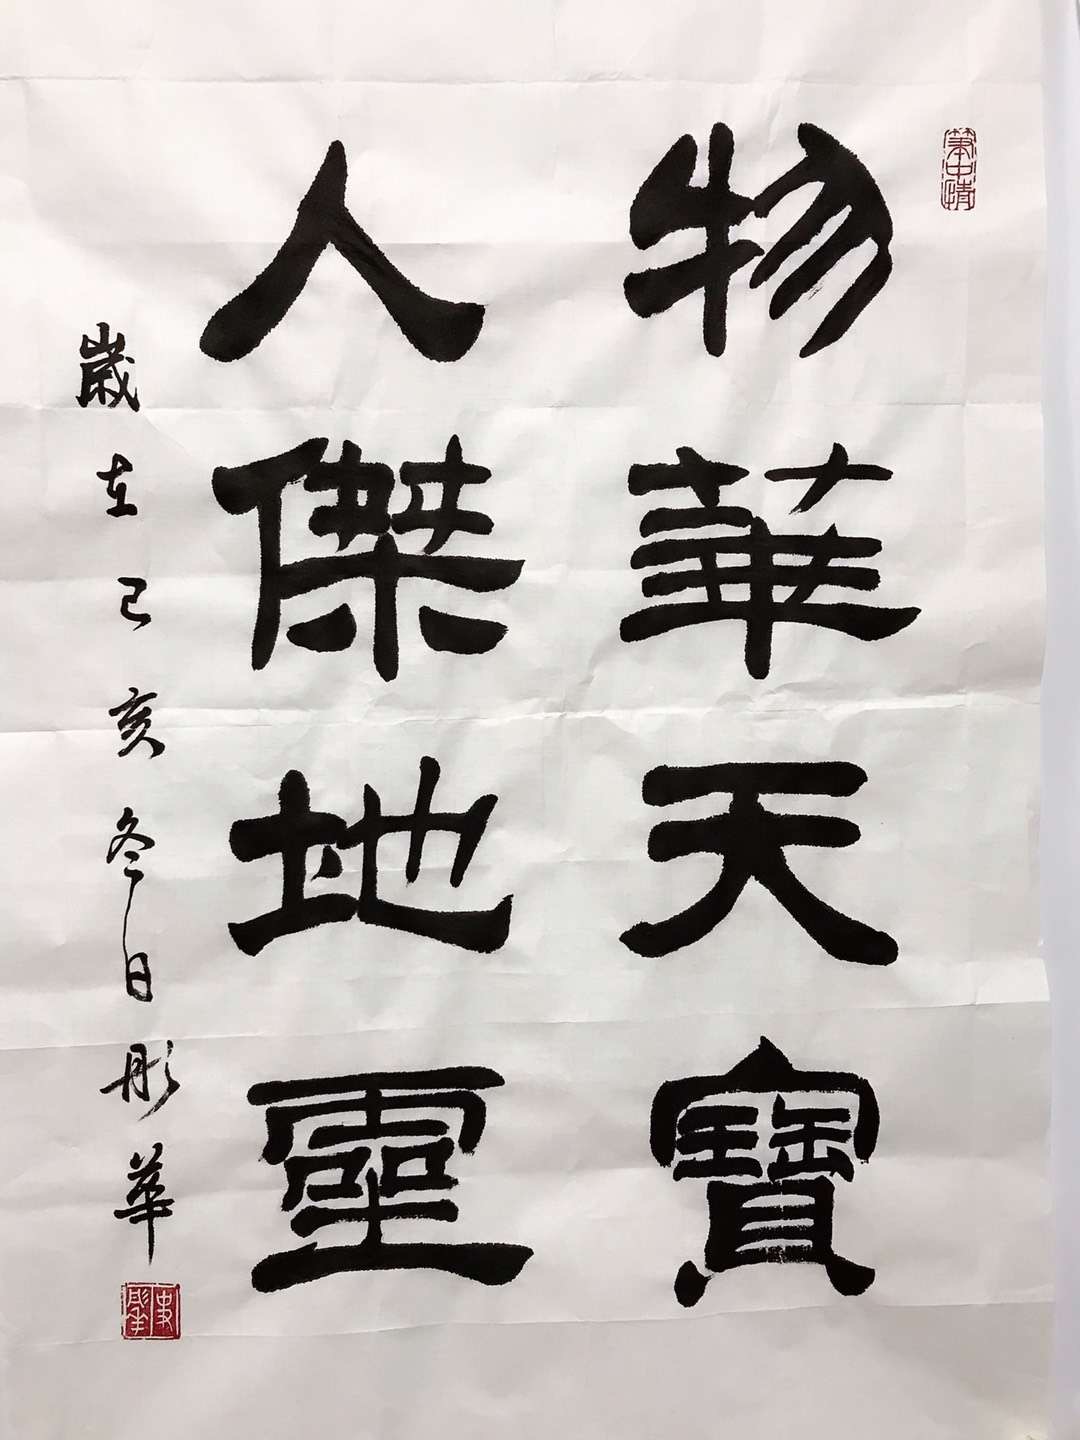 物華天寶
人傑地靈
歲在己亥冬日彤華